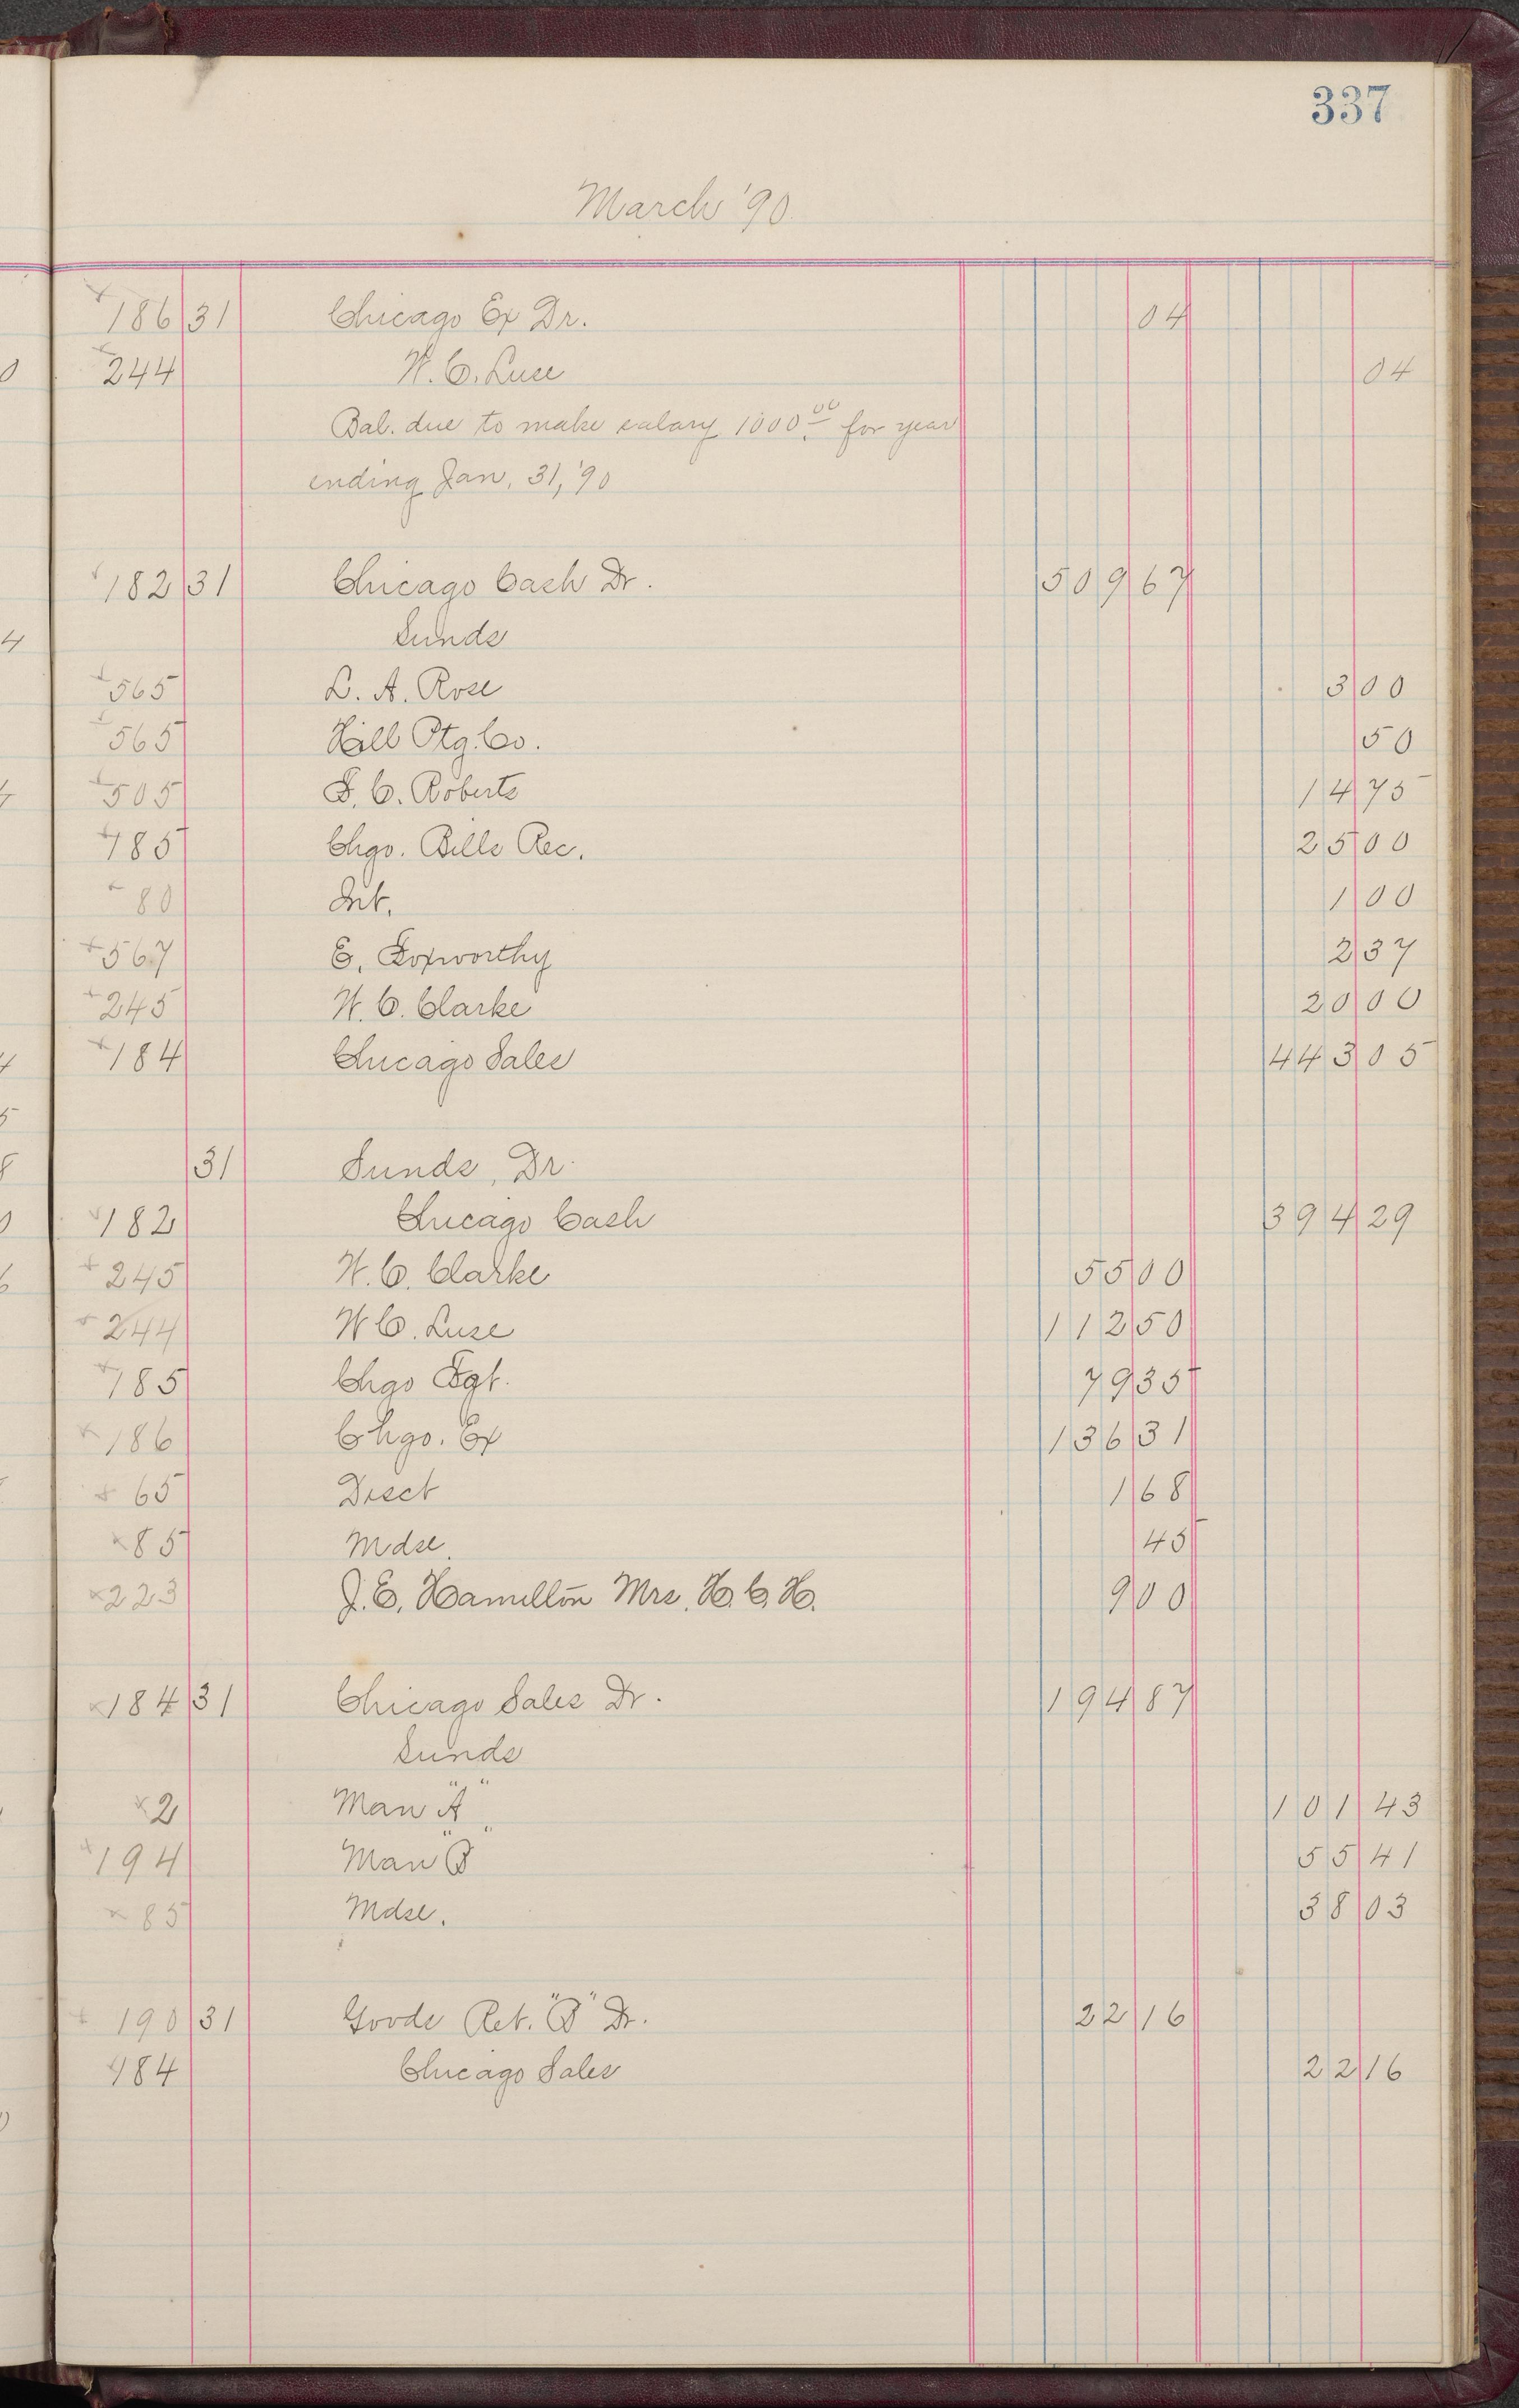 337
March '90
186 31 Chicago Ex Dr. 04
244 W. C. Luse 04
Bal. due to make salary 1000.00 for year
ending Jan. 31, '90
182 31 Chicago Cash Dr. 509 67
Sunds
565 L. A. Rose 3 00
565 Hill Ptg. Co. 50
505 F. C. Roberts 14 75
185 Chgo. Bills Rec. 25 00
80 Int. 1 00
567 E. Foxworthy 2 37
245 W. C. Clarke 20 00
184 Chicago Sales 443 05
31 Sunds, Dr.
182 Chicago Cash 394 29
245 W. C. Clarke 55 00
244 W C. Luse 112 50
185 Chgo Fgt. 79 35
186 Chgo. Ex 136 31
65 Disct 1 68
85 Mdse. 45
223 J. E. Hamilton Mrs. H. C. H. 9 00
184 31 Chicago Sales Dr. 194 87
Sunds
2 Man "A" 101 43
194 Man "B" 55 41
85 Mdse. 38 03
190 31 Goods Ret. "B" Dr. 22 16
184 Chicago Sales 22 16